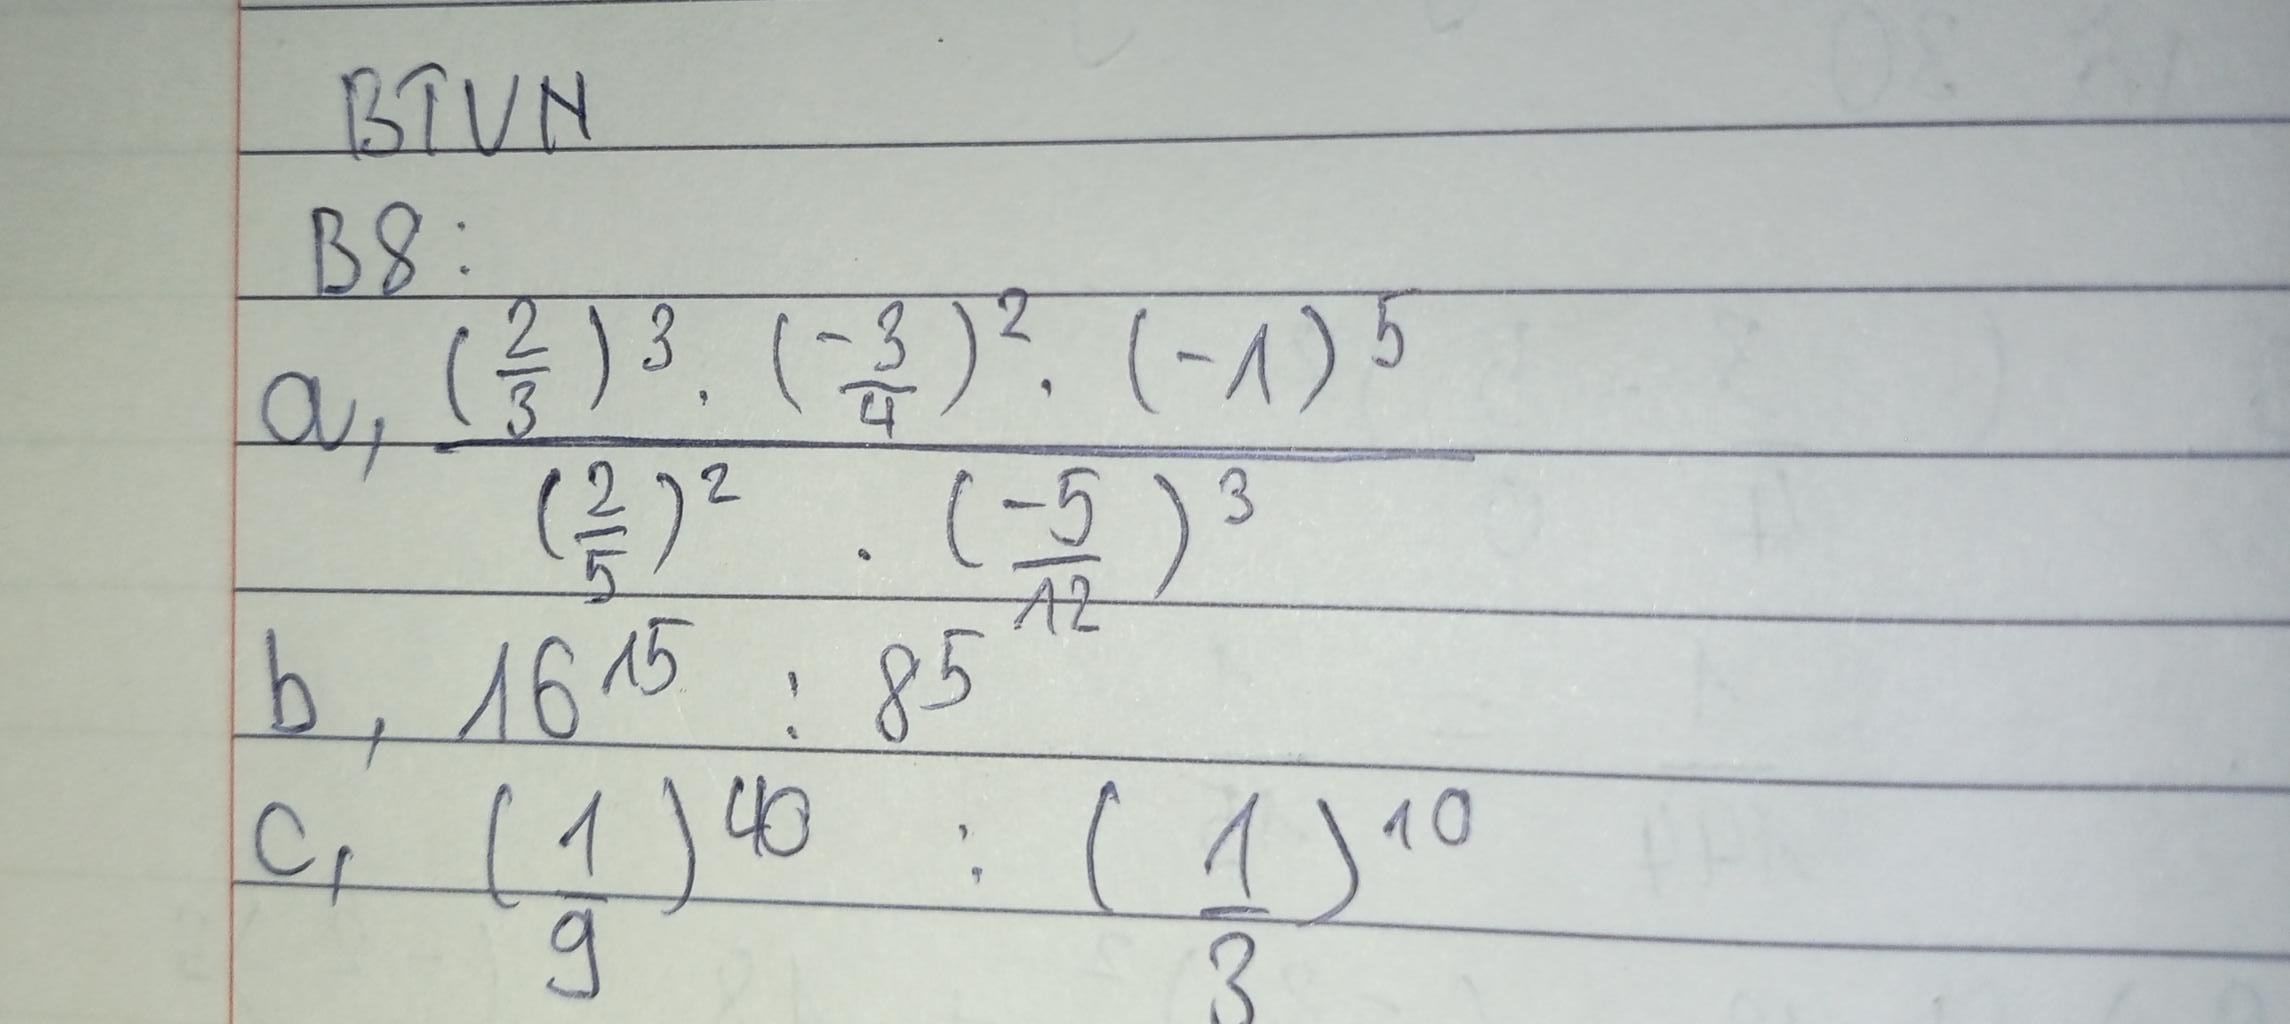 BTVN
B8:
a, ((2/3)^3 . (-3/4)^2 . (-1)^5) / ((2/5)^2 . (-5/12)^3)
b, 16^15 : 8^5
c, (1/9)^40 : (1/3)^10